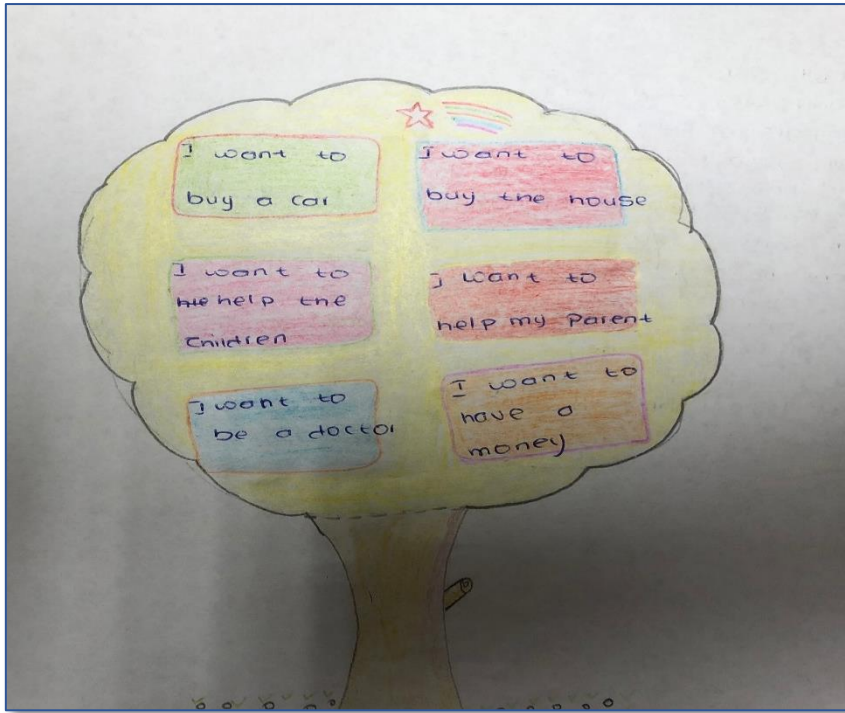 I want to
buy a car
I want to
buy the house
I want to
help the
children
I want to
help my Parent
I want to
be a doctor
I want to
have a
money